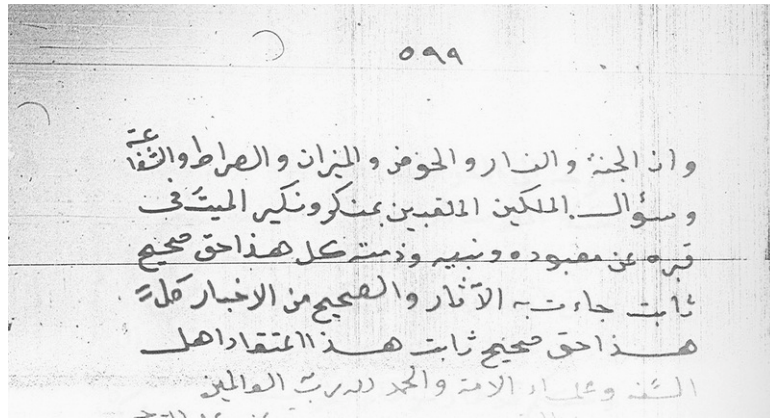 ٥٩٩
وان الجنة والنار والحوض والميزان والصراط والشفاعة
وسؤال الملكين الملقبين بمنكر ونكير الميت فى
قبره عن معبوده ونبيه وذمته كل هذا حق صحيح
ثابت جاءت به الآثار والصحيح من الاخبار كل
هذا حق صحيح ثابت هذا المتقاد اهل
السنه وعلماء الامة والحمد لله رب العالمين